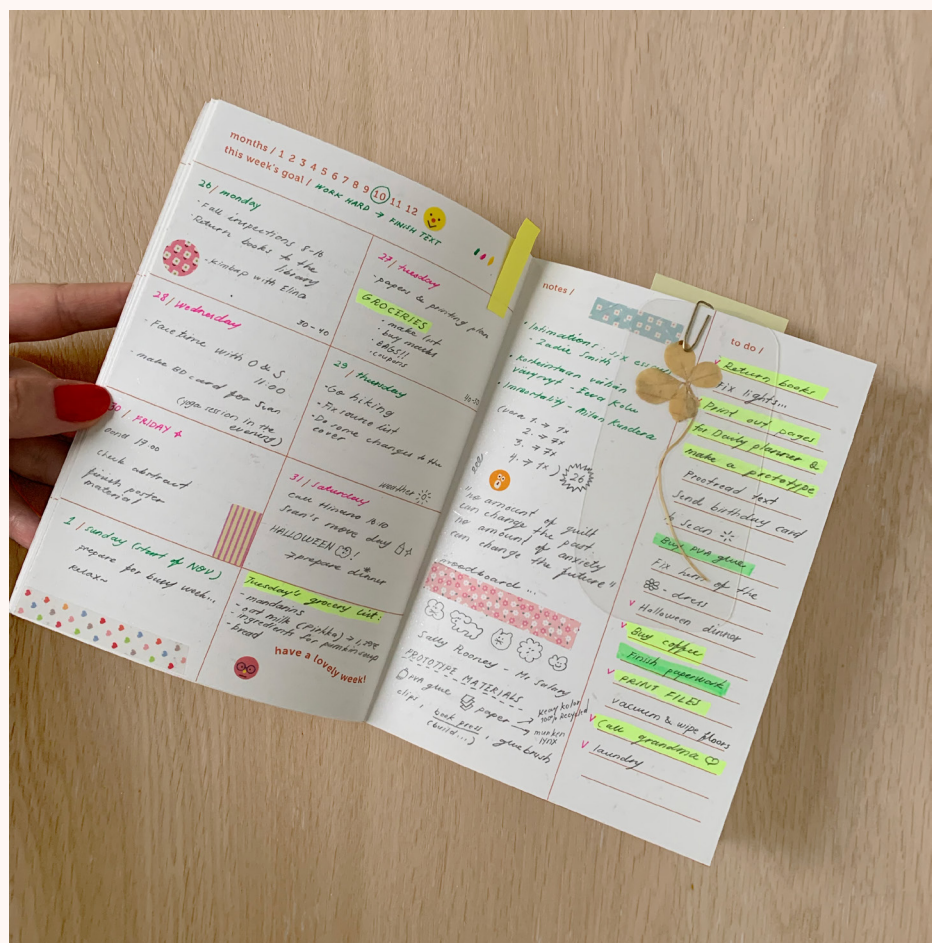 months / 1 2 3 4 5 6 7 8 9 10 11 12
this week's goal / WORK HARD → FINISH TEXT
26 / monday
· Fall inspections 8-16
· Return books to the
library
· kimbap with Elina
27 / tuesday
· papers & printing plan
GROCERIES
· make list
· buy masks
· BAGS!!
· coupons
28 / Wednesday
30-40
· Facetime with O & S
11:00
· make BD card for Sean
(yoga session in the
evening)
29 / thursday
40-50
· Go hiking
· Fix route list
· Do some changes to the
cover
30 / FRIDAY
Band 19:00
check abstract
finish poster
material
weather
31 / Saturday
call Hinano 18:10
Sean's move day
HALLOWEEN !
→ prepare dinner
1 / Sunday (start of NOV)
prepare for busy week...
Relax~
Tuesday's grocery list:
- mandarins
- oat milk (Pirkka)
- ingredients for pumkin soup
- bread
have a lovely week!
notes /
· Intimations: six essays
· Zadie Smith
· Immortality - Milan Kundera
1. → 7x
2. → 7x
3. → 7x
4. → 1x )
26
"no amount of guilt
can change the past
no amount of anxiety
can change the future"
moodboard ...
Sally Rooney Mr. Salary
PROTOTYPE MATERIALS
PVA glue paper →
100% Recycled
munken
lynx
clips, book press, glue brush
(build...)
to do /
Return books
Fix lights...
Print out pages
for Daily planner &
make a prototype
Proofread text
Send birthday card
to Sean
Buy PVA glue
Fix hem of the
- dress
v Halloween dinner
v Buy coffee
Finish paperwork
v PRINT FILES
vacuum & wipe floors
v Call grandma
v laundry